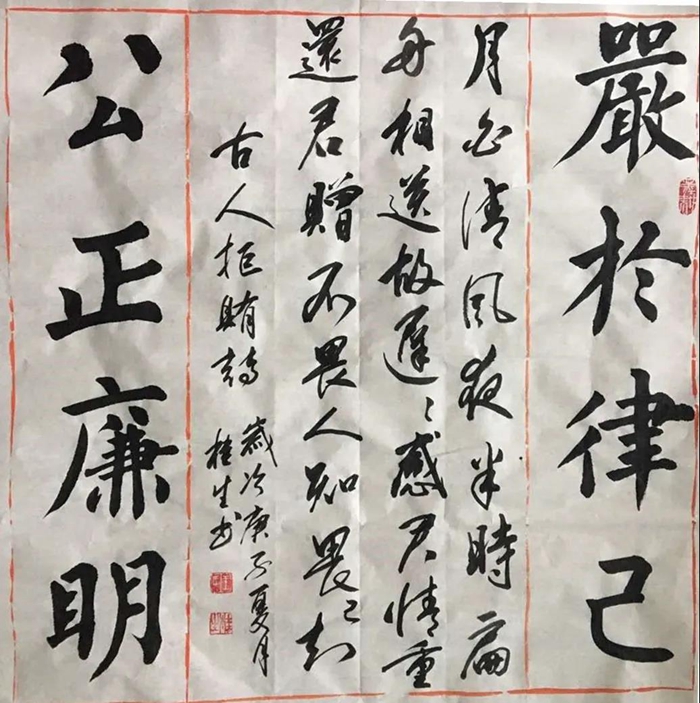 嚴於律己
月白清風夜半時扁
舟相送故遲〻感君情重
還君贈不畏人知畏己知
古人拒賄詩
歲次庚子夏月
桂生書
公正廉明